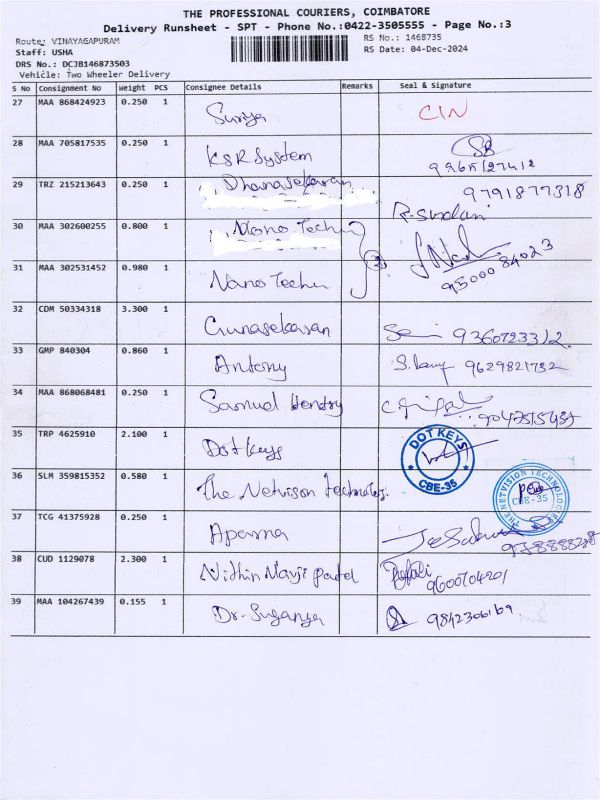 THE PROFESSIONAL COURIERS, COIMBATORE
Delivery Runsheet - SPT - Phone No.:0422-3505555 - Page No.:3
Route: VINAYAGAPURAM
RS No.: 1468735
Staff: USHA
RS Date: 04-Dec-2024
DRS No.: DCJB146873503
Vehicle: Two Wheeler Delivery
S No Consignment No Weight PCS Consignee Details Remarks Seal & Signature
27 MAA 868424923 0.250 1 Surya CIN
28 MAA 705817535 0.250 1 KSR System
29 TRZ 215213643 0.250 1 Dhanasekaran 9791877318
R-Sndan
30 MAA 302600255 0.800 1 Nano Techn
95000 84023
31 MAA 302531452 0.980 1 Nano Techn
32 CDM 50334318 3.300 1 Gunasekaran 9360723312.
33 GMP 840304 0.860 1 Antony 9629821732
34 MAA 868068481 0.250 1 Samuel Hendry
35 TRP 4625910 2.100 1 Dot Keys
DOT KEYS
CBE-35
36 SLM 359815352 0.580 1 The Netvison technology.
THE NETVISION TECHNOLOGIES
CBE-35
37 TCG 41375928 0.250 1 Aparna
38 CUD 1129078 2.300 1 Nithin Navji Patel 9600704201
39 MAA 104267439 0.155 1 Dr. Suganya 9842306169